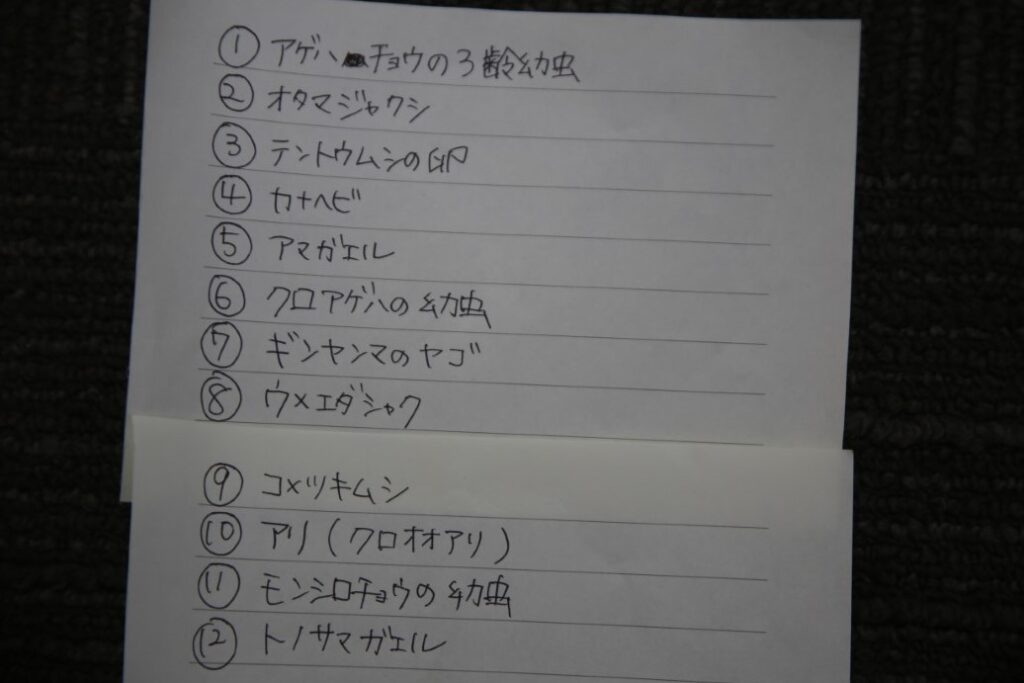 ① アゲハチョウの3齢幼虫
② オタマジャクシ
③ テントウムシの卵
④ カナヘビ
⑤ アマガエル
⑥ クロアゲハの幼虫
⑦ ギンヤンマのヤゴ
⑧ ウメエダシャク
⑨ コメツキムシ
⑩ アリ(クロオオアリ)
⑪ モンシロチョウの幼虫
⑫ トノサマガエル